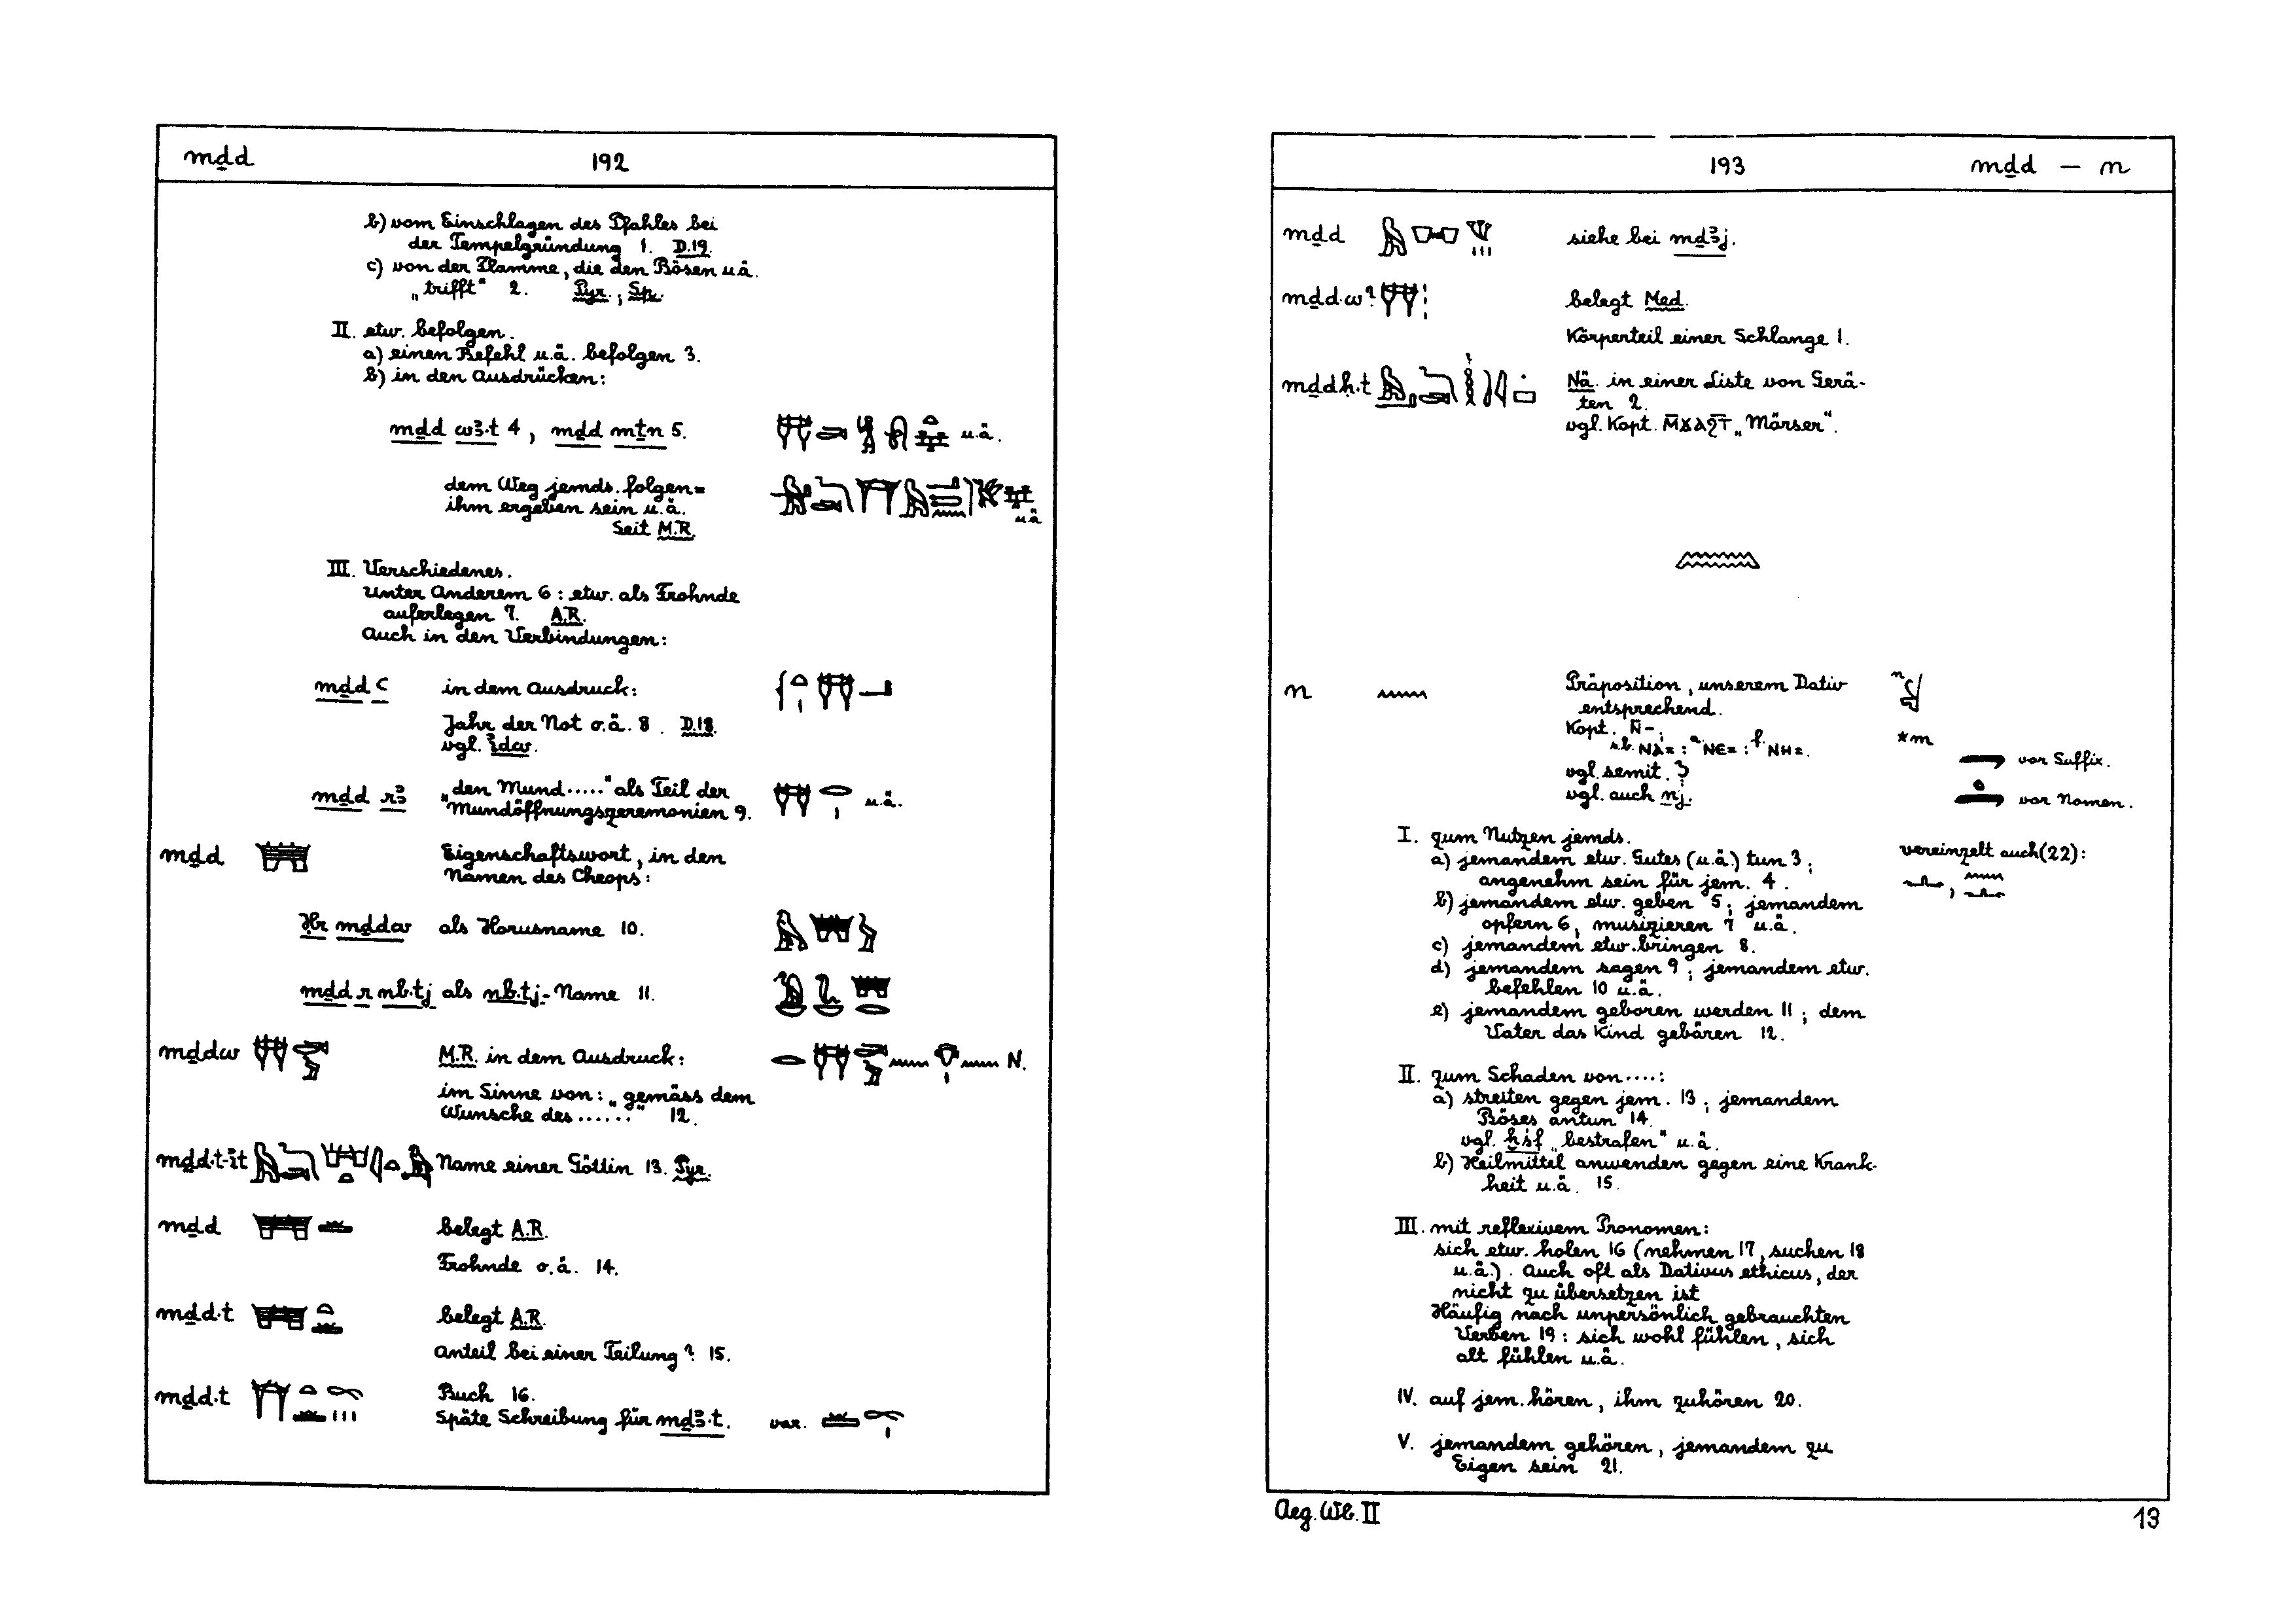 mḏd 192
b) vom Einschlagen des Pfahles bei
der Tempelgründung 1. D.19.
c) von der Flamme, die den Bösen u.ä.
„trifft“ 2. Pyr.; Sp.
II. etw. befolgen.
a) einen Befehl u.ä. befolgen 3.
b) in den Ausdrücken:
mḏd wꜣ·t 4, mḏd mṯn 5. u.ä.
dem Weg jemds. folgen =
ihm ergeben sein u.ä. u.ä
Seit M.R.
III. Verschiedenes.
Unter Anderem 6: etw. als Frohnde
auferlegen 7. A.R.
Auch in den Verbindungen:
mḏd ꜥ in dem Ausdruck:
Jahr der Not o.ä. 8. D.18.
vgl. ꜣdw.
mḏd rꜣ „den Mund.....“ als Teil der u.ä.
Mundöffnungszeremonien 9.
mḏd Eigenschaftswort, in den
Namen des Cheops:
Ḥr mḏdw als Horusname 10.
mḏd r nb·tj als nb·tj-Name 11.
mḏdw M.R. in dem Ausdruck: N.
im Sinne von: „gemäss dem
Wunsche des ......“ 12.
mḏd·t-ı͗t Name einer Göttin 13. Pyr.
mḏd belegt A.R.
Frohnde o.ä. 14.
mḏd·t belegt A.R.
Anteil bei einer Teilung? 15.
mḏd·t Buch 16.
Späte Schreibung für mḏꜣ·t. var.
193 mḏd — n
mḏd siehe bei mḏꜣj.
mḏd·w? belegt Med.
Körperteil einer Schlange 1.
mḏdḥ·t Nä. in einer Liste von Gerä-
ten 2.
vgl. Kopt. „Mörser“.
n Präposition, unserem Dativ
entsprechend.
Kopt. N̄-;
s.b. ⲚⲀ= : a. ⲚⲈ= : f. ⲚⲎ=. *m
vor Suffix.
vgl. semit. ?
vgl. auch nj. vor Nomen.
I. zum Nutzen jemds.
a) jemandem etw. Gutes (u.ä.) tun 3; vereinzelt auch (22):
angenehm sein für jem. 4.
b) jemandem etw. geben 5; jemandem
opfern 6, musizieren 7 u.ä.
c) jemandem etw. bringen 8.
d) jemandem sagen 9; jemandem etw.
befehlen 10 u.ä.
e) jemandem geboren werden 11; dem
Vater das Kind gebären 12.
II. zum Schaden von....:
a) streiten gegen jem. 13; jemandem
Böses antun 14.
vgl. ḫśf „bestrafen“ u.ä.
b) Heilmittel anwenden gegen eine Krank-
heit u.ä. 15.
III. mit reflexivem Pronomen:
sich etw. holen 16 (nehmen 17, suchen 18
u.ä.). Auch oft als Dativus ethicus, der
nicht zu übersetzen ist
Häufig nach unpersönlich gebrauchten
Verben 19: sich wohl fühlen, sich
alt fühlen u.ä.
IV. auf jem. hören, ihm zuhören 20.
V. jemandem gehören, jemandem zu
Eigen sein 21.
Aeg. Wb. II 13